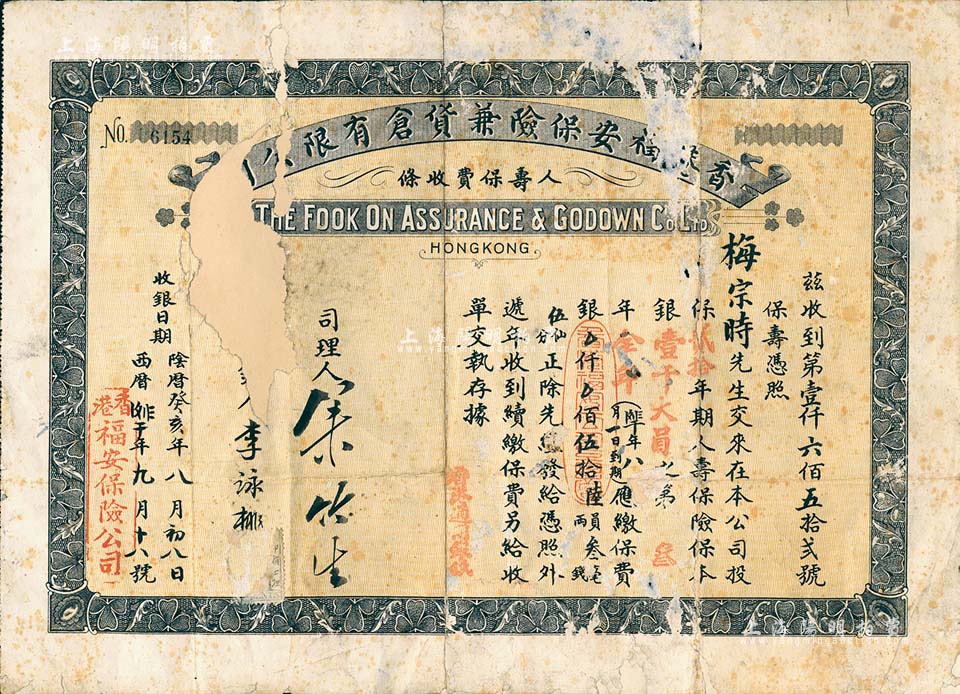 上海陽明拍賣
No. 6154
香港福安保險兼貨倉有限公司
人壽保費收條
THE FOOK ON ASSURANCE & GODOWN CO. LTD.
HONGKONG.
茲收到第壹仟六佰五拾弍號
保壽憑照
梅宗時先生交來在本公司投
保弍拾年期人壽保險保本
銀壹千大員之第叁
年全年應繳保費
月一日到期
銀仟佰伍拾陸員叁毛
兩錢
伍仙
分
正除先繳發給憑照外
遞年收到續繳保費另給收
單交執存據
香港通用銀紙
司理人
李泳
收銀日期
陰曆癸亥年八月初八日
西曆年九月十八號
香港福安保險公司
上海陽明拍賣
上海陽明拍賣